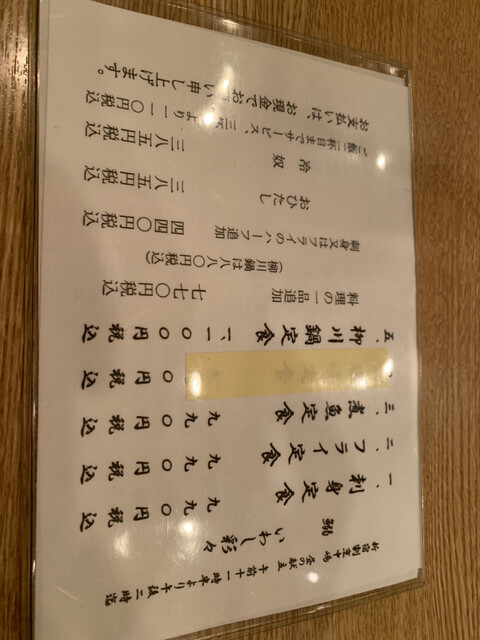 新宿割烹中嶋 昼の献立 午前十一時半より午後二時迄
鰯 いわし彩々
一、刺身定食 九九〇円税込
二、フライ定食 九九〇円税込
三、煮魚定食 九九〇円税込
、 〇円税込
五、柳川鍋定食 一、一〇〇円税込
料理の一品追加 七七〇円税込
(柳川鍋は八八〇円税込)
刺身又はフライのハーフ追加 四四〇円税込
おひたし 三八五円税込
冷奴 三八五円税込
ご飯二杯目までサービス、三 より一一〇円税込
お支払いは、お現金でお い申し上げます。